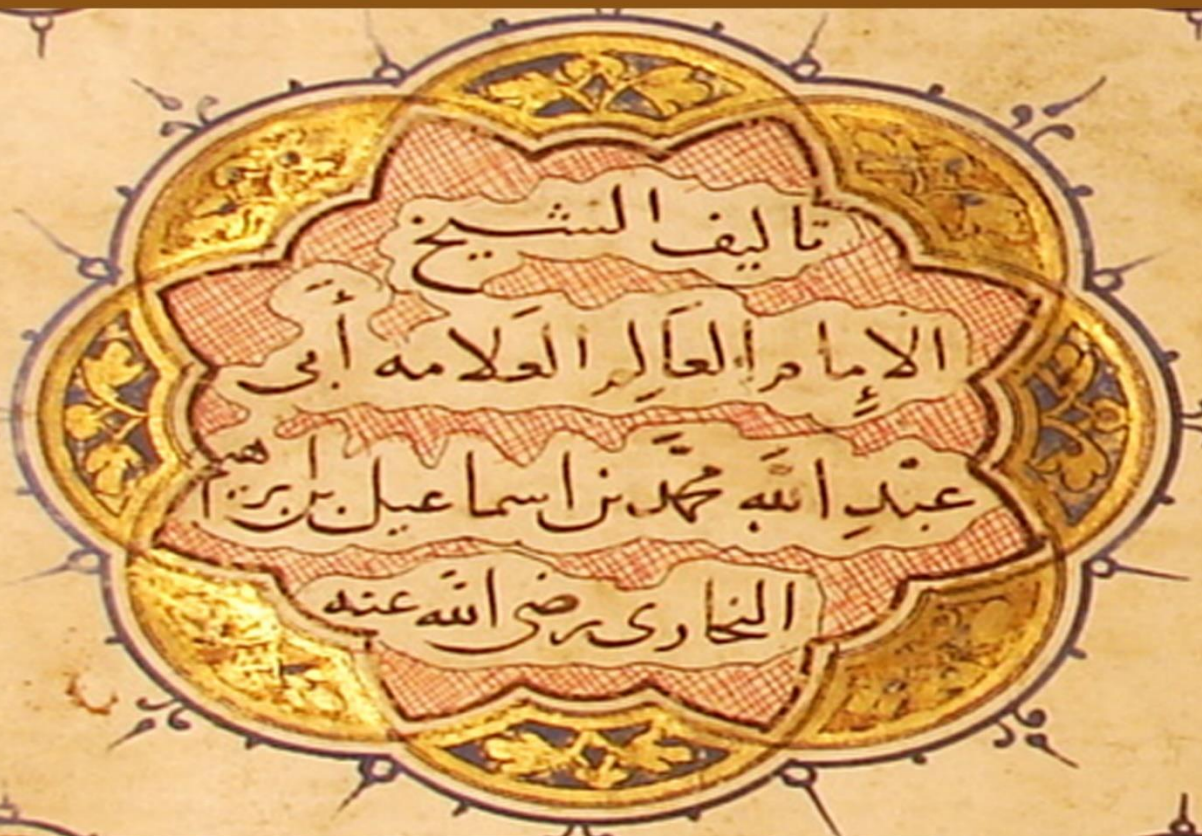 تاليف الشيخ
الإمام العالِر العَلامه أَبى
عبْدِ الله محمَّد بن اسماعيل بن ابرهيم
البخارى رضى الله عنه